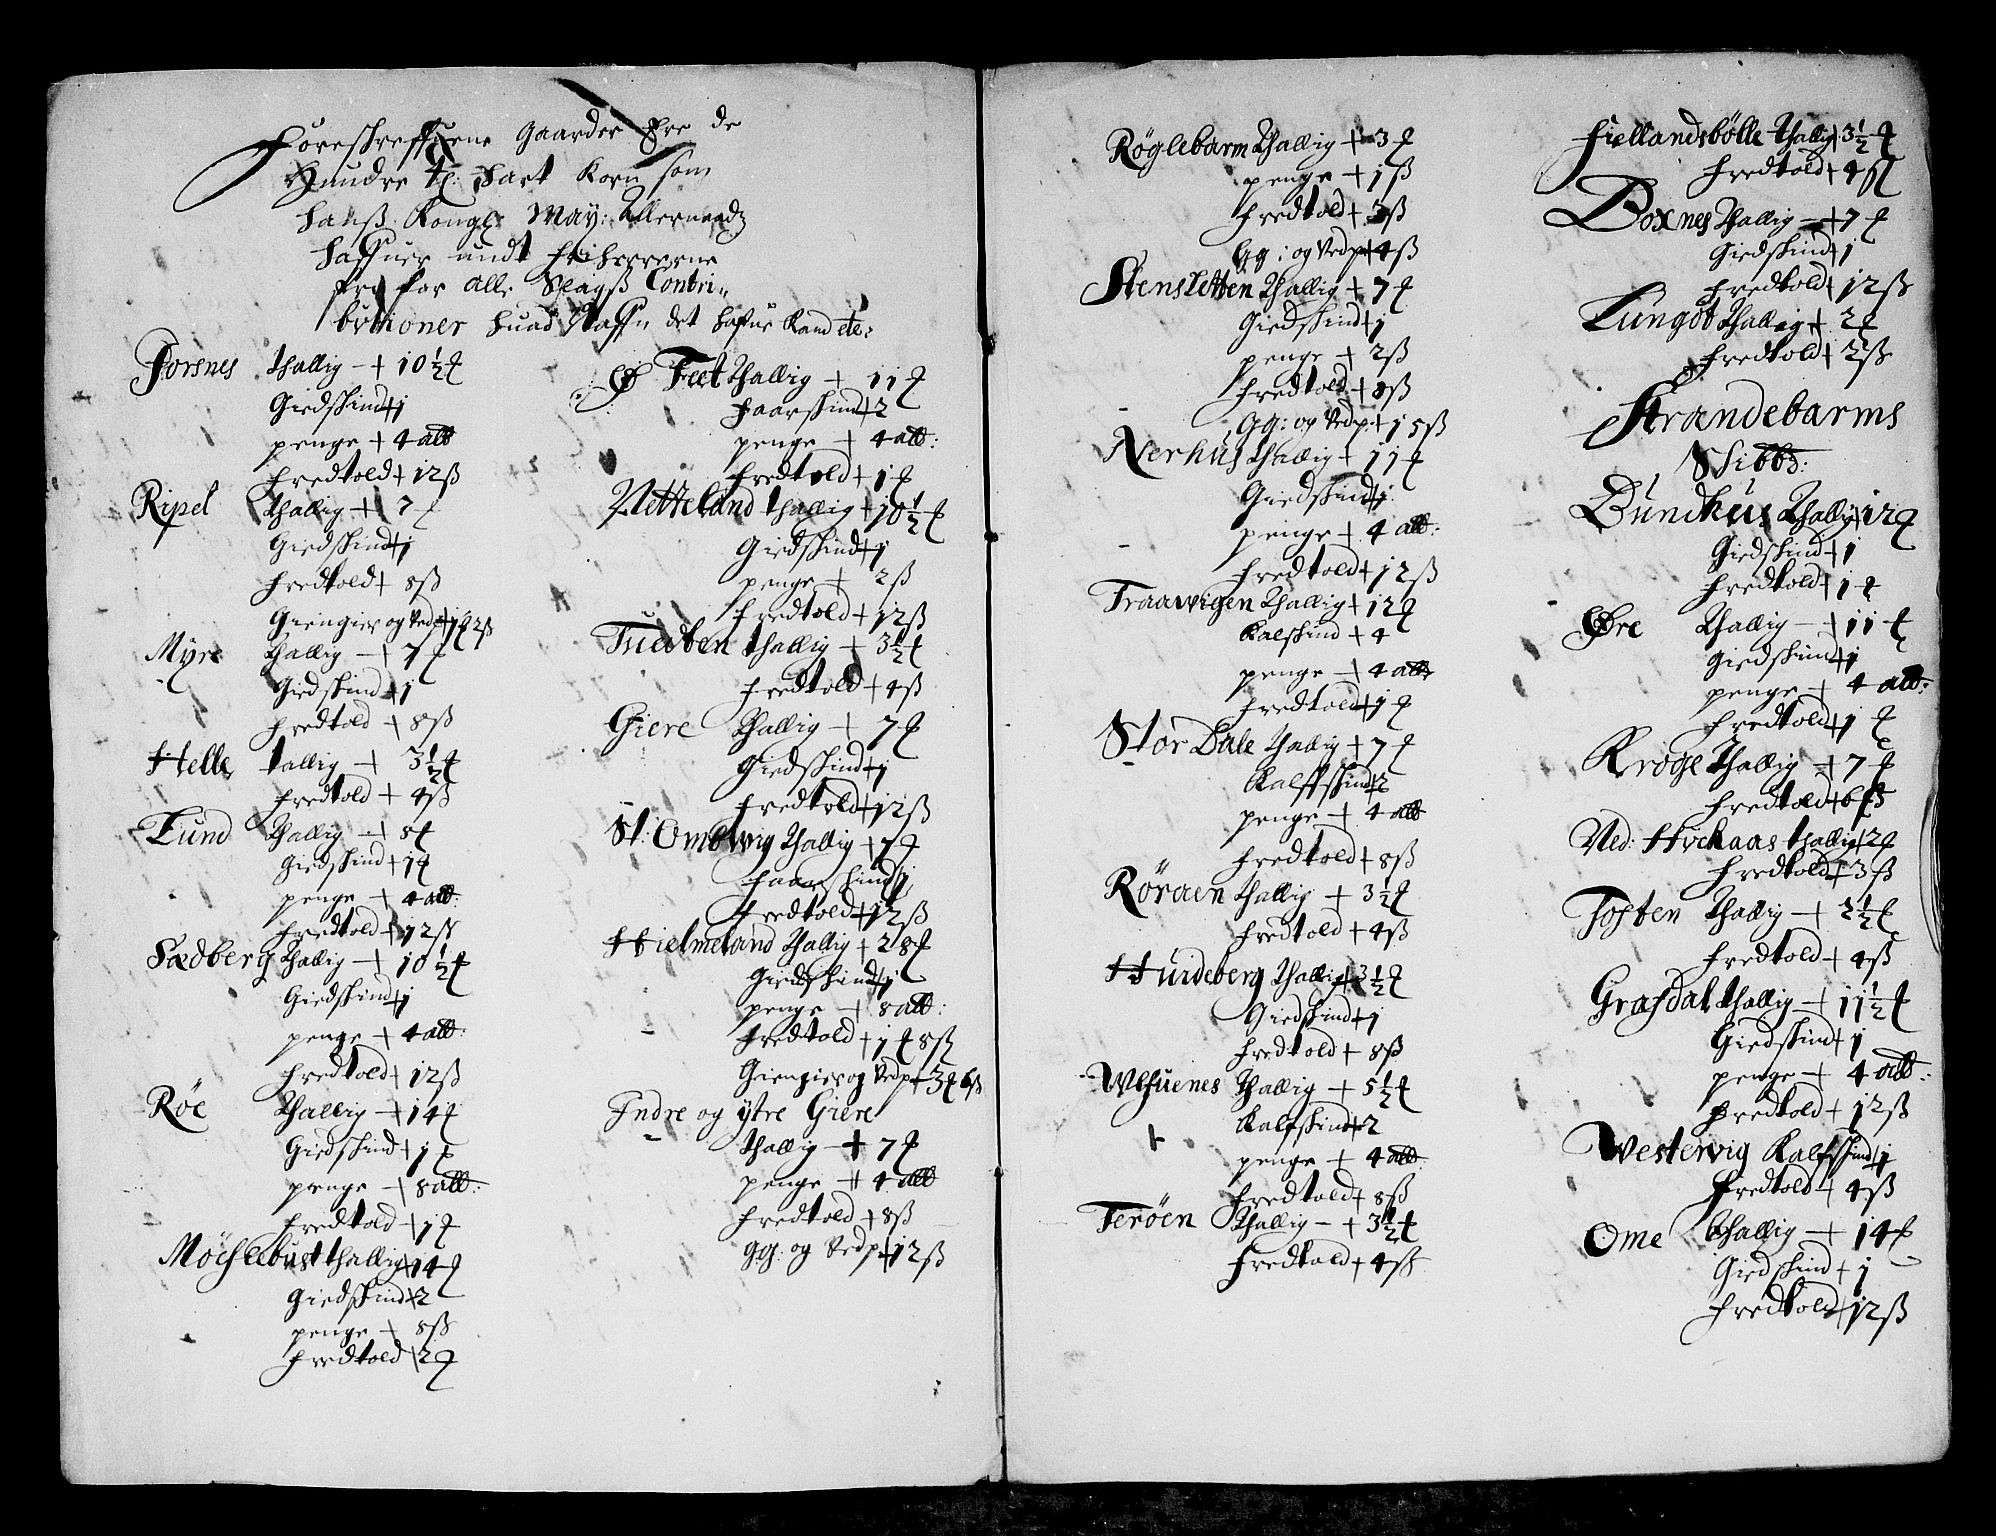 Foreskreffuene Gaarder Ere de
Hundre tr: hart Korn som
hanß Kongl: May: Allernaadz
haffuer undt friherrerne
fri for alle Slagß Contri„
butioner huad Naffn det hafue Kand etc:
Forsnes thallig + 10½ #
Giedskind + 1
penge + 4 alb
fredtold + 12 ß
Ripel thallig + 7 #
Giedskind + 1
fredtold + 8 ß
Giengier og Vedp + 1 # 2 ß
Myre thallig + 7 #
Giedskind + 1
fredtold + 8 ß
Helle tallig + 3½ #
fredtold + 4 ß
Lund thallig + 8 #
Giedskind + 1 #
penge + 4 alb:
fredtold + 12 ß
Sædberg thallig + 10½ #
Giedskind + 1
penge + 4 alb:
fredtold + 12 ß
Røe thallig + 14 #
Giedskind + 1 #
penge + 8 alb:
fredtold + 1 #
Møchlebust thallig + 14 #
Giedskind + 2
penge + 8 ß
fredtold + 2 #
Ø Feet thallig + 11 #
faarskind + 2
penge + 4 alb:
fredtold + 1 #
Netteland thallig + 10½ #
Giedskind + 1
penge + 2 ß
fredtold + 12 ß
Tuedten thallig + 3½ #
fredtold + 4 ß
Giere thallig + 7 #
Giedskind + 1
fredtold + 12 ß
St: Ombwig thallig + 7 #
faarskind + 1
fredtold + 12 ß
Hielmeland thallig + 28 #
Giedskind + 1
penge + 8 alb:
fredtold + 1 # 8 ß
Giengier og Vedp + 3 # 6 ß
Indre og ytre Giere
thallig + 7 #
penge + 4 alb
fredtold + 8 ß
gg: og Vedp + 12 ß
Røglebarm thallig + 3 #
penge + 1 ß
fredtold + 3 ß
gg: og Vedp + 4 ß
Stensletten thallig + 7 #
Giedskind + 1
penge + 2 ß
fredtold + 8 ß
gg: og Vedp + 15 ß
Nerhus thallig + 11 #
Giedskind + 1
penge + 4 alb:
fredtold + 12 ß
Traawigen thallig + 12 #
Kalfskind + 4
penge + 4 alb
fredtold + 1 #
Stor Dale thallig + 7 #
Kalffskind + 2
penge + 4 alb
fredtold + 8 ß
Røraen thallig + 3½ #
fredtold + 4 ß
Huideberg thallig + 3½ #
Giedskind + 1
fredtold + 8 ß
Wlfuenes thallig + 5½ #
Kalfskind + 2
penge + 4 alb:
fredtold + 8 ß
Terøen thallig + 3½ #
fredtold + 4 ß
Fiellandsbølle thallig + 3½ #
fredtold + 4 ß
Boxnes thallig + 7 #
Giedskind + 1
fredtold + 12 ß
Lungøt thallig + 2 #
fredtold + 2 ß
Strandebarms
Skibb:
Bundhus thallig + 12 #
Giedskind + 1
fredtold + 1 #
Øre thallig + 11 #
Giedskind + 1
penge + 4 alb:
fredtold + 1 #
Kroge thallig + 7 #
fredtold + 6 ß
Ned: Hvekaas thallig + 2 #
fredtold + 3 ß
Toften thallig + 2½ #
fredtold + 4 ß
Grafdal thallig + 11½ #
Giedskind + 1
penge + 4 alb:
fredtold + 12 ß
Westerwig Kalfskind + 1
fredtold + 4 ß
Ome thallig + 14 #
Giedskind + 1
fredtold + 12 ß